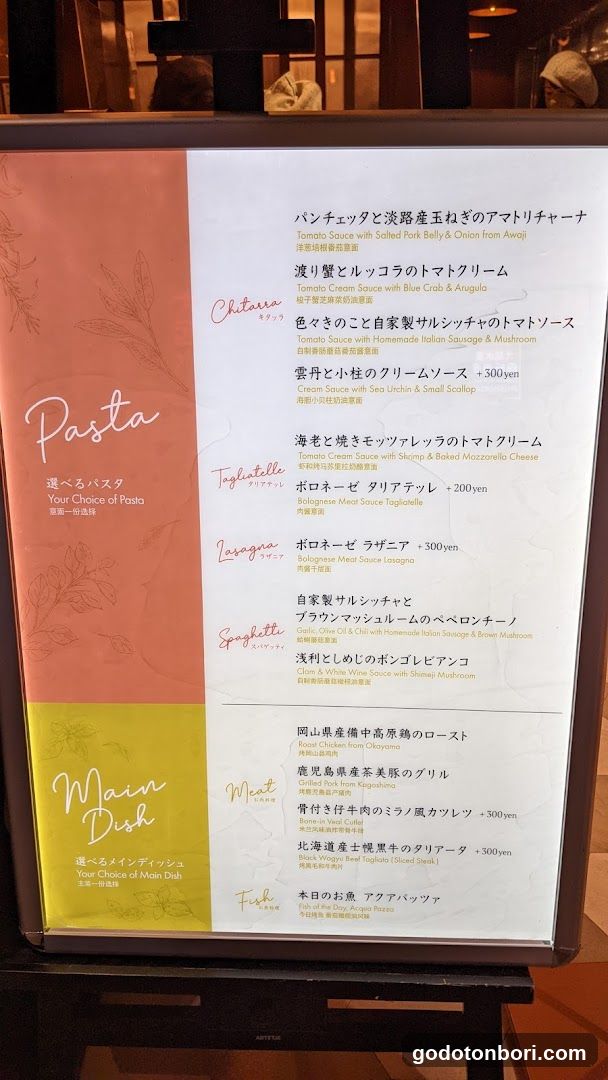 Pasta
選べるパスタ
Your Choice of Pasta
意面一份选择
Chitarra
キタッラ
パンチェッタと淡路産玉ねぎのアマトリチャーナ
Tomato Sauce with Salted Pork Belly & Onion from Awaji
洋葱培根番茄意面
渡り蟹とルッコラのトマトクリーム
Tomato Cream Sauce with Blue Crab & Arugula
梭子蟹芝麻菜奶油意面
色々きのこと自家製サルシッチャのトマトソース
Tomato Sauce with Homemade Italian Sausage & Mushroom
自制香肠蘑菇番茄酱意面
雲丹と小柱のクリームソース +300yen
Cream Sauce with Sea Urchin & Small Scallop
海胆小贝柱奶油意面
Tagliatelle
タリアテッレ
海老と焼きモッツァレッラのトマトクリーム
Tomato Cream Sauce with Shrimp & Baked Mozzarella Cheese
虾和烤马苏里拉奶酪意面
ボロネーゼ タリアテッレ +200yen
Bolognese Meat Sauce Tagliatelle
肉酱意面
Lasagna
ラザニア
ボロネーゼ ラザニア +300yen
Bolognese Meat Sauce Lasagna
肉酱千层面
Spaghetti
スパゲッティ
自家製サルシッチャと
ブラウンマッシュルームのペペロンチーノ
Garlic, Olive Oil & Chili with Homemade Italian Sausage & Brown Mushroom
蛤蜊蘑菇意面
浅利としめじのボンゴレビアンコ
Clam & White Wine Sauce with Shimeji Mushroom
自制香肠蘑菇橄榄油意面
Main
Dish
選べるメインディッシュ
Your Choice of Main Dish
主菜一份选择
Meat
お肉料理
岡山県産備中高原鶏のロースト
Roast Chicken from Okayama
烤冈山县鸡肉
鹿児島県産茶美豚のグリル
Grilled Pork from Kagoshima
烤鹿儿岛县产猪肉
骨付き仔牛肉のミラノ風カツレツ +300yen
Bone-in Veal Cutlet
米兰风味油炸带骨牛排
北海道産士幌黒牛のタリアータ +300yen
Black Wagyu Beef Tagliata (Sliced Steak)
烤黑毛和牛肉片
Fish
お魚料理
本日のお魚 アクアパッツァ
Fish of the Day, Acqua Pazza
今日烤鱼 番茄橄榄油风味
godotonbori.com